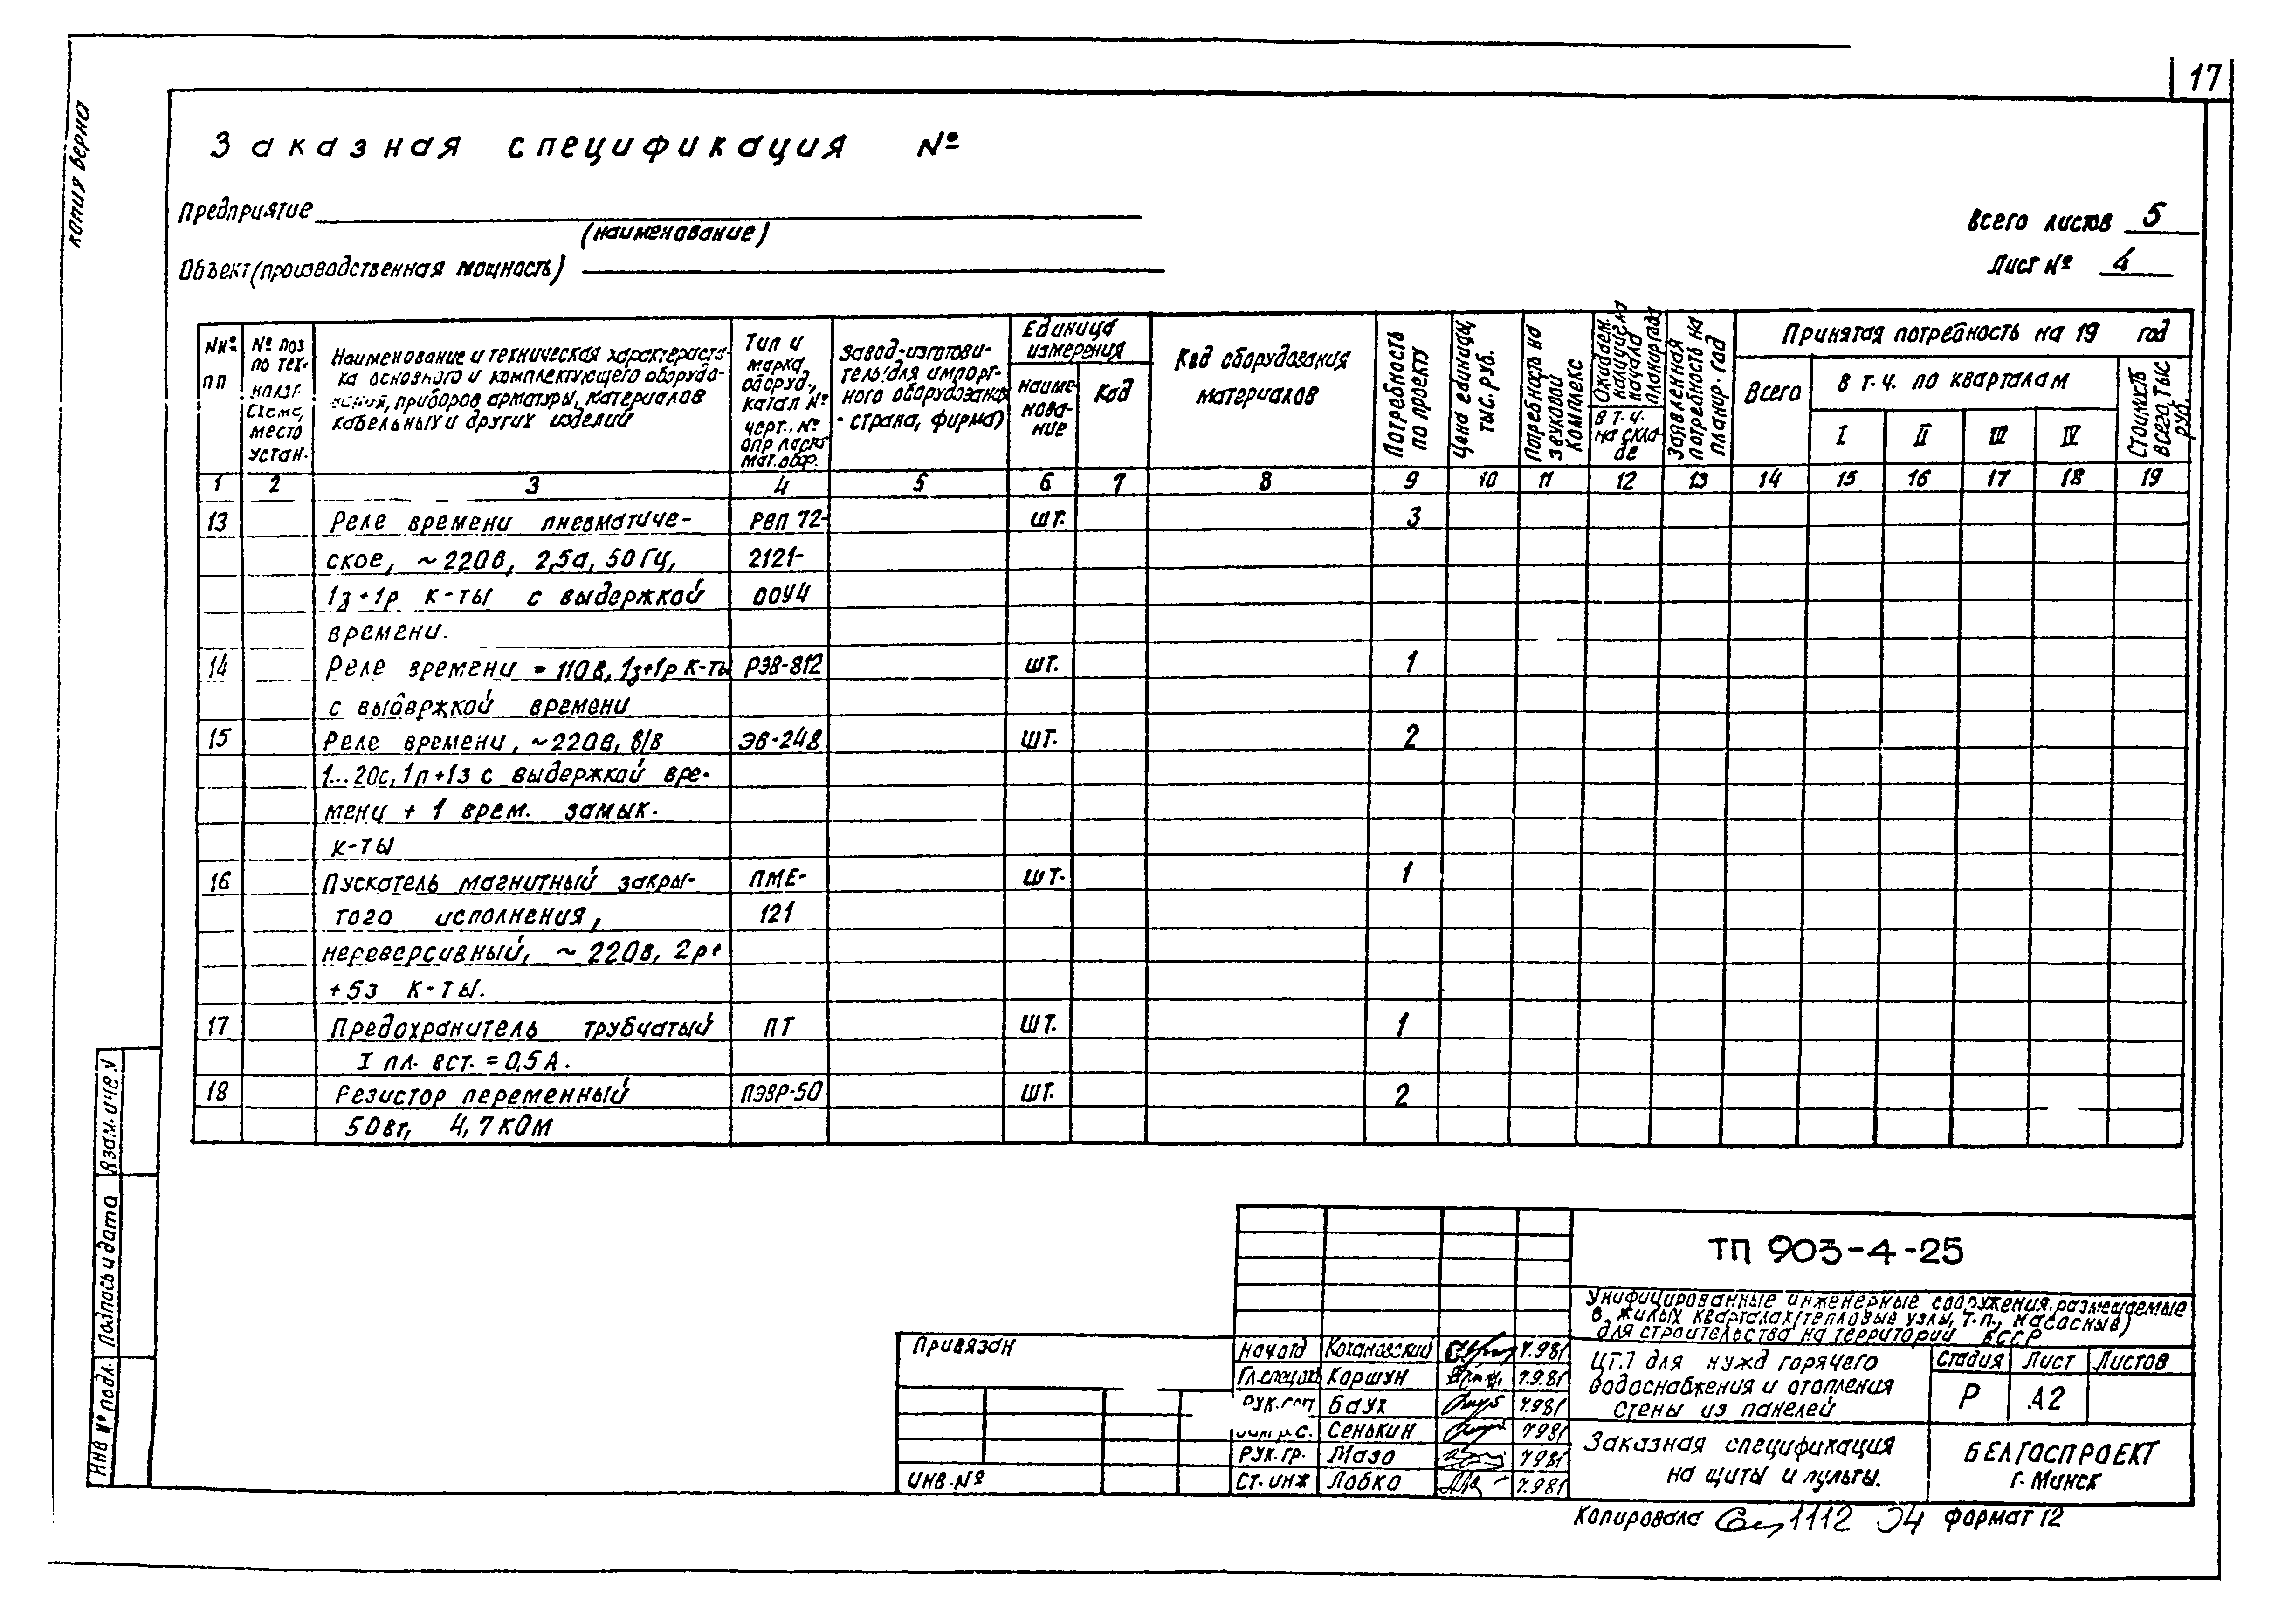 17
копия верна
Заказная спецификация №
Предприятие
(наименование)
Объект (производственная мощность)
Всего листов 5
Лист № 4
№№ пп
№ поз по тех-
нолог.
схеме,
место
устан.
Наименование и техническая характеристи-
ка основного и комплектующего оборудо-
вания, приборов арматуры, материалов
кабельных и других изделий
Тип и
марка
оборуд.,
катал №
черт., №
опр листа
мат. обор.
Завод-изготови-
тель (для импорт-
ного оборудования
- страна, фирма)
Единица
измерения
наиме-
нова-
ние
Код
Код оборудования
материалов
Потребность
по проекту
Цена единицы,
тыс. руб.
Потребность на
звуковой
комплекс
Ожидаем.
наличие на
начало
планир года
в т.ч.
на скла-
де
Заявленная
потребность на
планир. год
Принятая потребность на 19 год
Всего
в т.ч. по кварталам
I II III IV
Стоимость
всего, тыс
руб.
1 2 3 4 5 6 7 8 9 10 11 12 13 14 15 16 17 18 19
13 Реле времени пневматиче- РВП 72- шт. 3
ское, ~220в, 2,5а, 50Гц, 2121-
1з+1р к-ты с выдержкой 00У4
времени.
14 Реле времени = 110в, 1з+1р к-ты РЭВ-812 шт. 1
с выдержкой времени
15 Реле времени, ~220в, в/в ЭВ-248 шт. 2
1...20с, 1п+1з с выдержкой вре-
мени + 1 врем. замык.
к-ты
16 Пускатель магнитный закры- ПМЕ- шт. 1
того исполнения, 121
нереверсивный, ~220в, 2р+
+5з к-ты.
17 Предохранитель трубчатый ПТ шт. 1
I пл. вст. = 0,5А.
18 Резистор переменный ПЭВР-50 шт. 2
50вт, 4,7 КОМ
Взам. инв. №
Подпись и дата
Инв № подл.
Привязан
Инв. №
нач отд Кохановский 7.981
Гл.спец.отд Коршун 7.981
Рук. Баух 7.981
Сенькин 7981
Рук. гр. Мазо 7981
Ст. инж Лобко 7.981
ТП 903-4-25
Унифицированные инженерные сооружения, размещаемые
в жилых кварталах (тепловые узлы, т.п., насосные)
для строительства на территории БССР
ЦТП для нужд горячего
водоснабжения и отопления
стены из панелей
Стадия Лист Листов
Р А2
Заказная спецификация
на щиты и пульты.
БЕЛГОСПРОЕКТ
г. Минск
Копировала 1112 34 формат 12